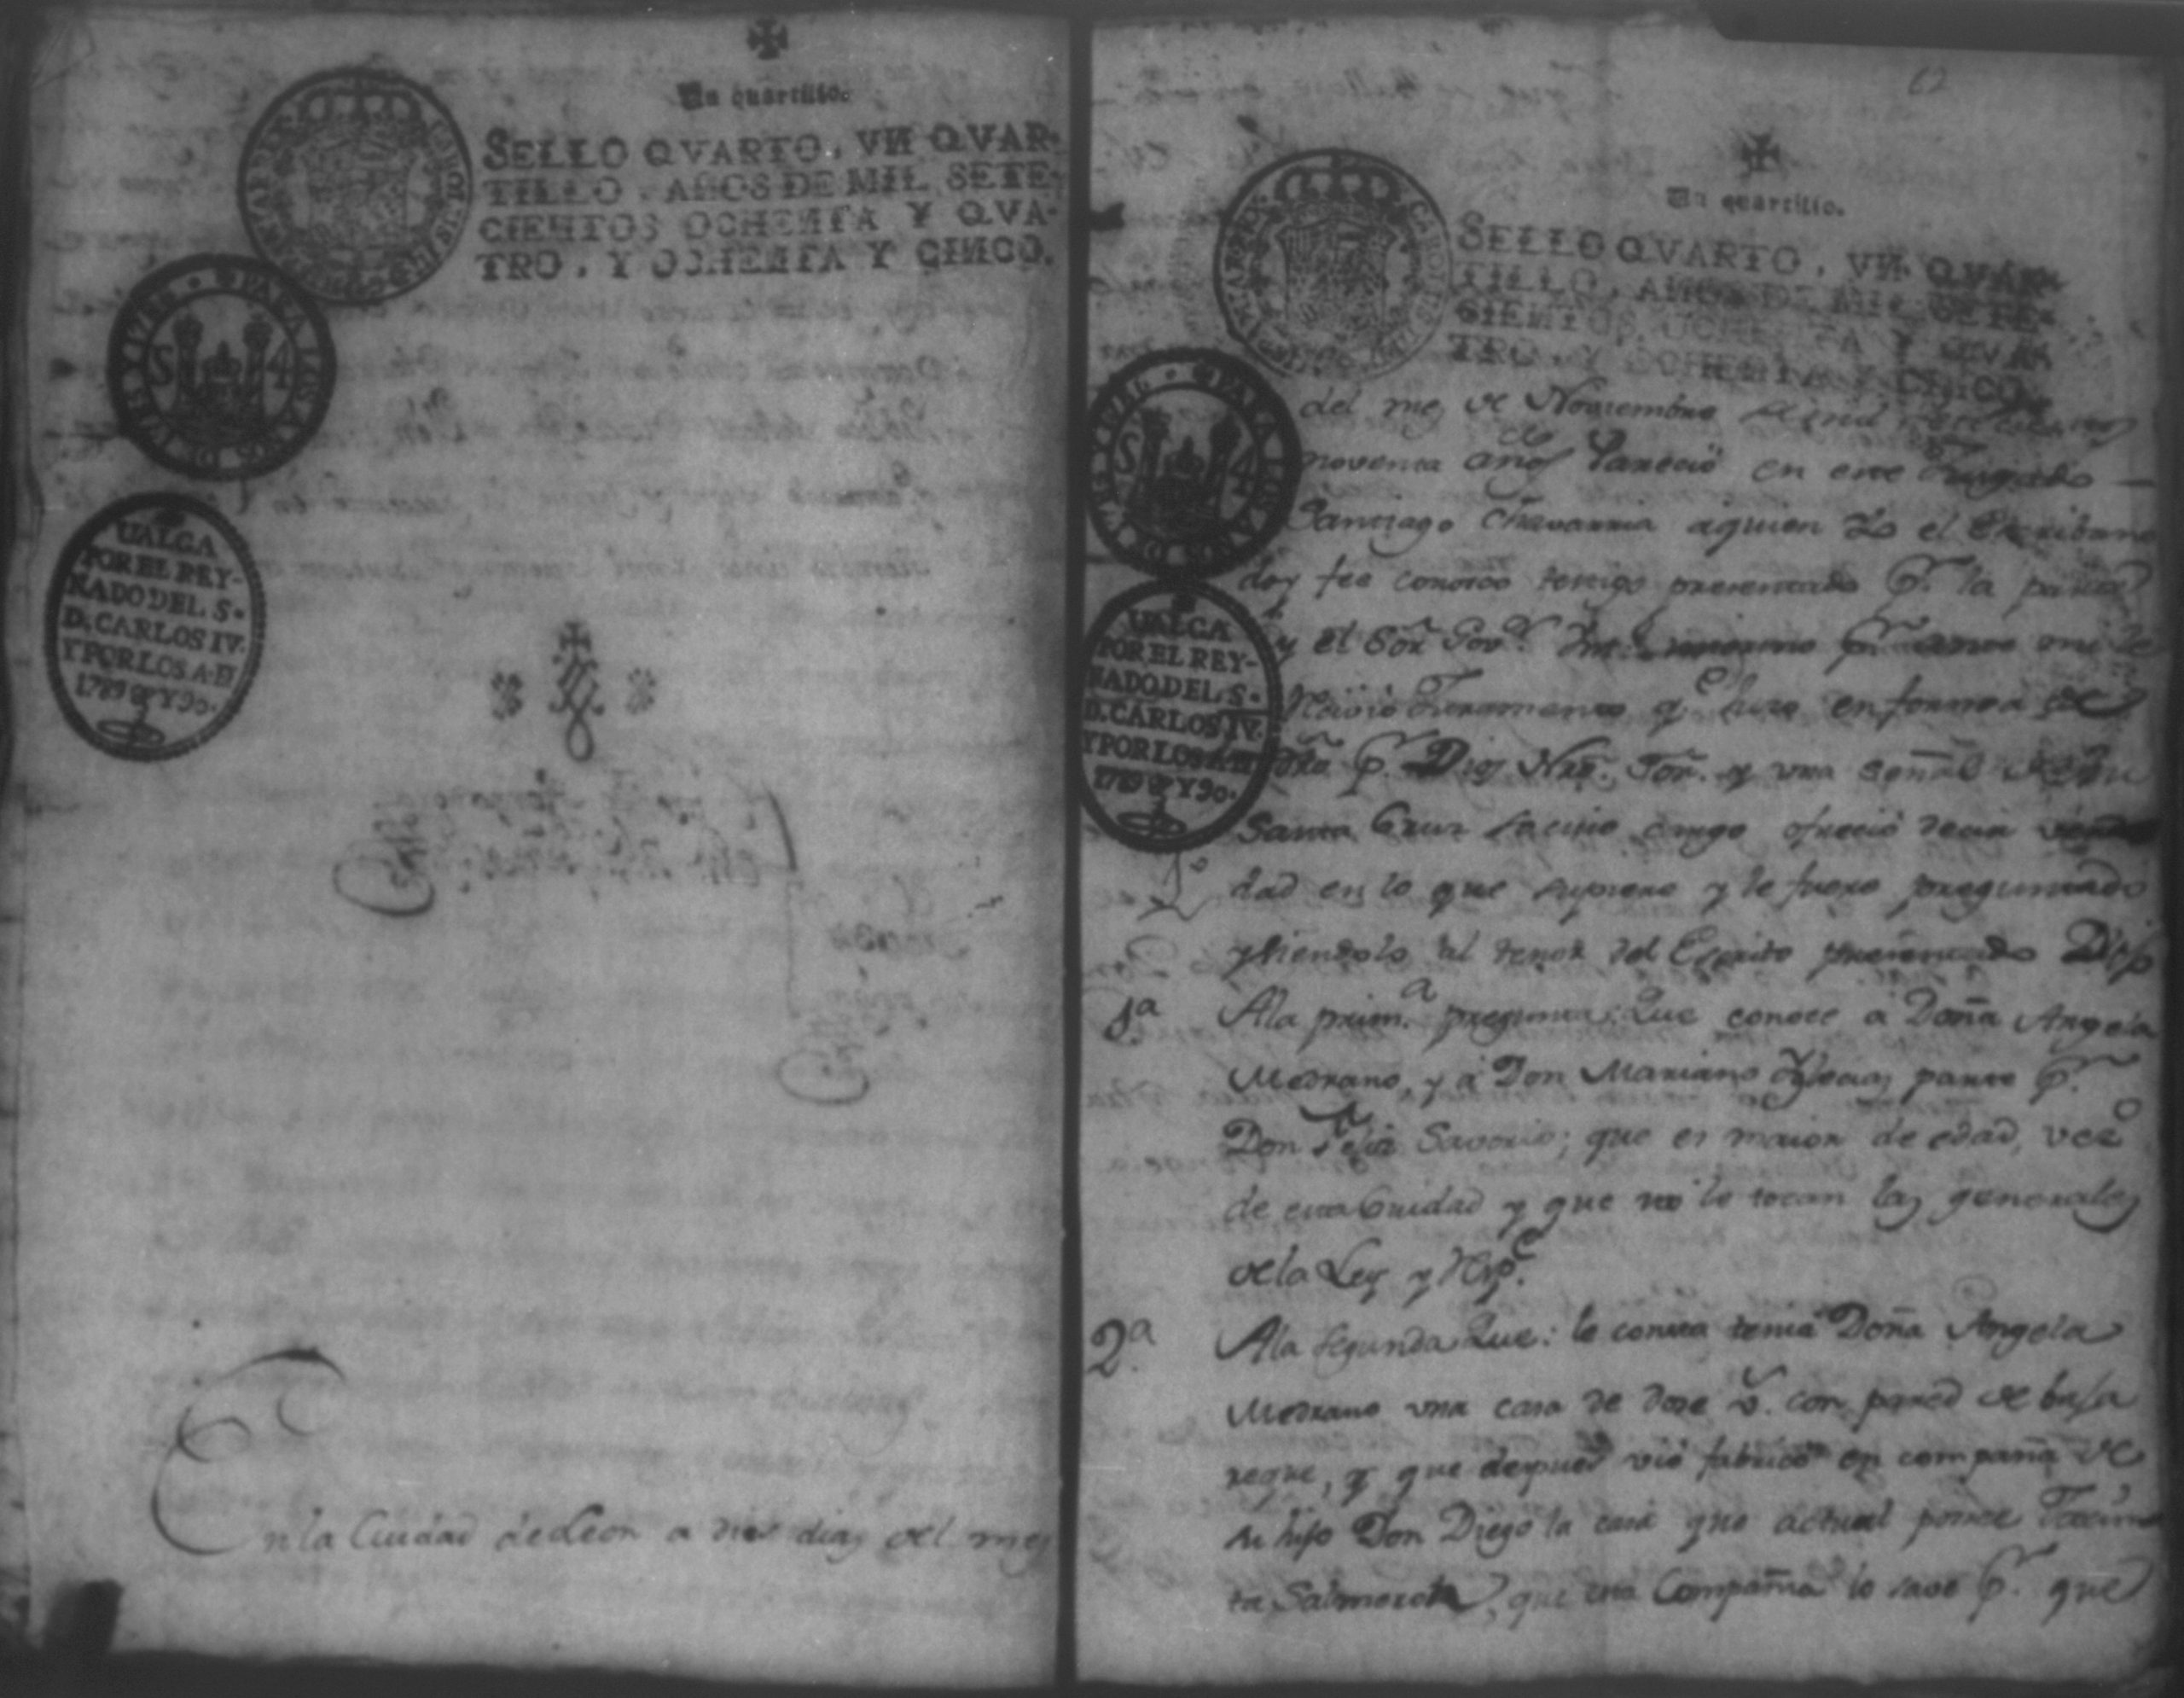 Un quartillo.
SELLO QVARTO, VN QVAR-
TILLO, AÑOS DE MIL SETE-
CIENTOS OCHENTA Y QVA-
TRO, Y OCHENTA Y CINCO.
PARA LOS AÑOS DE
S 4
VALGA
POR EL REY-
NADO DEL S.
D. CARLOS IV.
Y POR LOS A. D
1789 Y 90.
En la Ciudad de Leon a dies dias del mes
62
Un quartillo.
SELLO QVARTO, VN QVAR-
TILLO, AÑOS DE MIL SETE-
CIENTOS OCHENTA Y QVA-
TRO, Y OCHENTA Y CINCO.
PARA LOS AÑOS DE
S 4
VALGA
POR EL REY-
NADO DEL S.
D. CARLOS IV.
Y POR LOS A. D
1789 Y 90.
del mes de Noviembre de mil
noventa años Parecio en este Jusgado
Santiago Chavarria aquien Yo el Escribano
doy fee conosco testigo presentado p.r la parte
y el Sor Gov.r
Juramento q.e hizo en forma de
dro p.r Dios Nro. Sor. y una señal de su
Santa Cruz so cuio cargo ofreció decir verd
dad en lo que supiere y le fuere preguntado
y siendolo al tenor del Escrito presentado Dijo
1a. A la prim.a pregunta: Que conoce a Doña Angela
Medrano, y á Don Mariano parte p.r
Don Felix Savorio; que es maior de edad, vez.o
de esta Ciudad y que no le tocan las generales
de la Ley y Resp.e
2a. A la segunda Que: le consta tenia Doña Angela
Medrano una casa de dose v.s con pared de baja
reque, y que despues vió fabricó en compañia de
su hijo Don Diego la casa que actual posee Jacin
ta Salmoron, que esta Compañia lo save p.r que